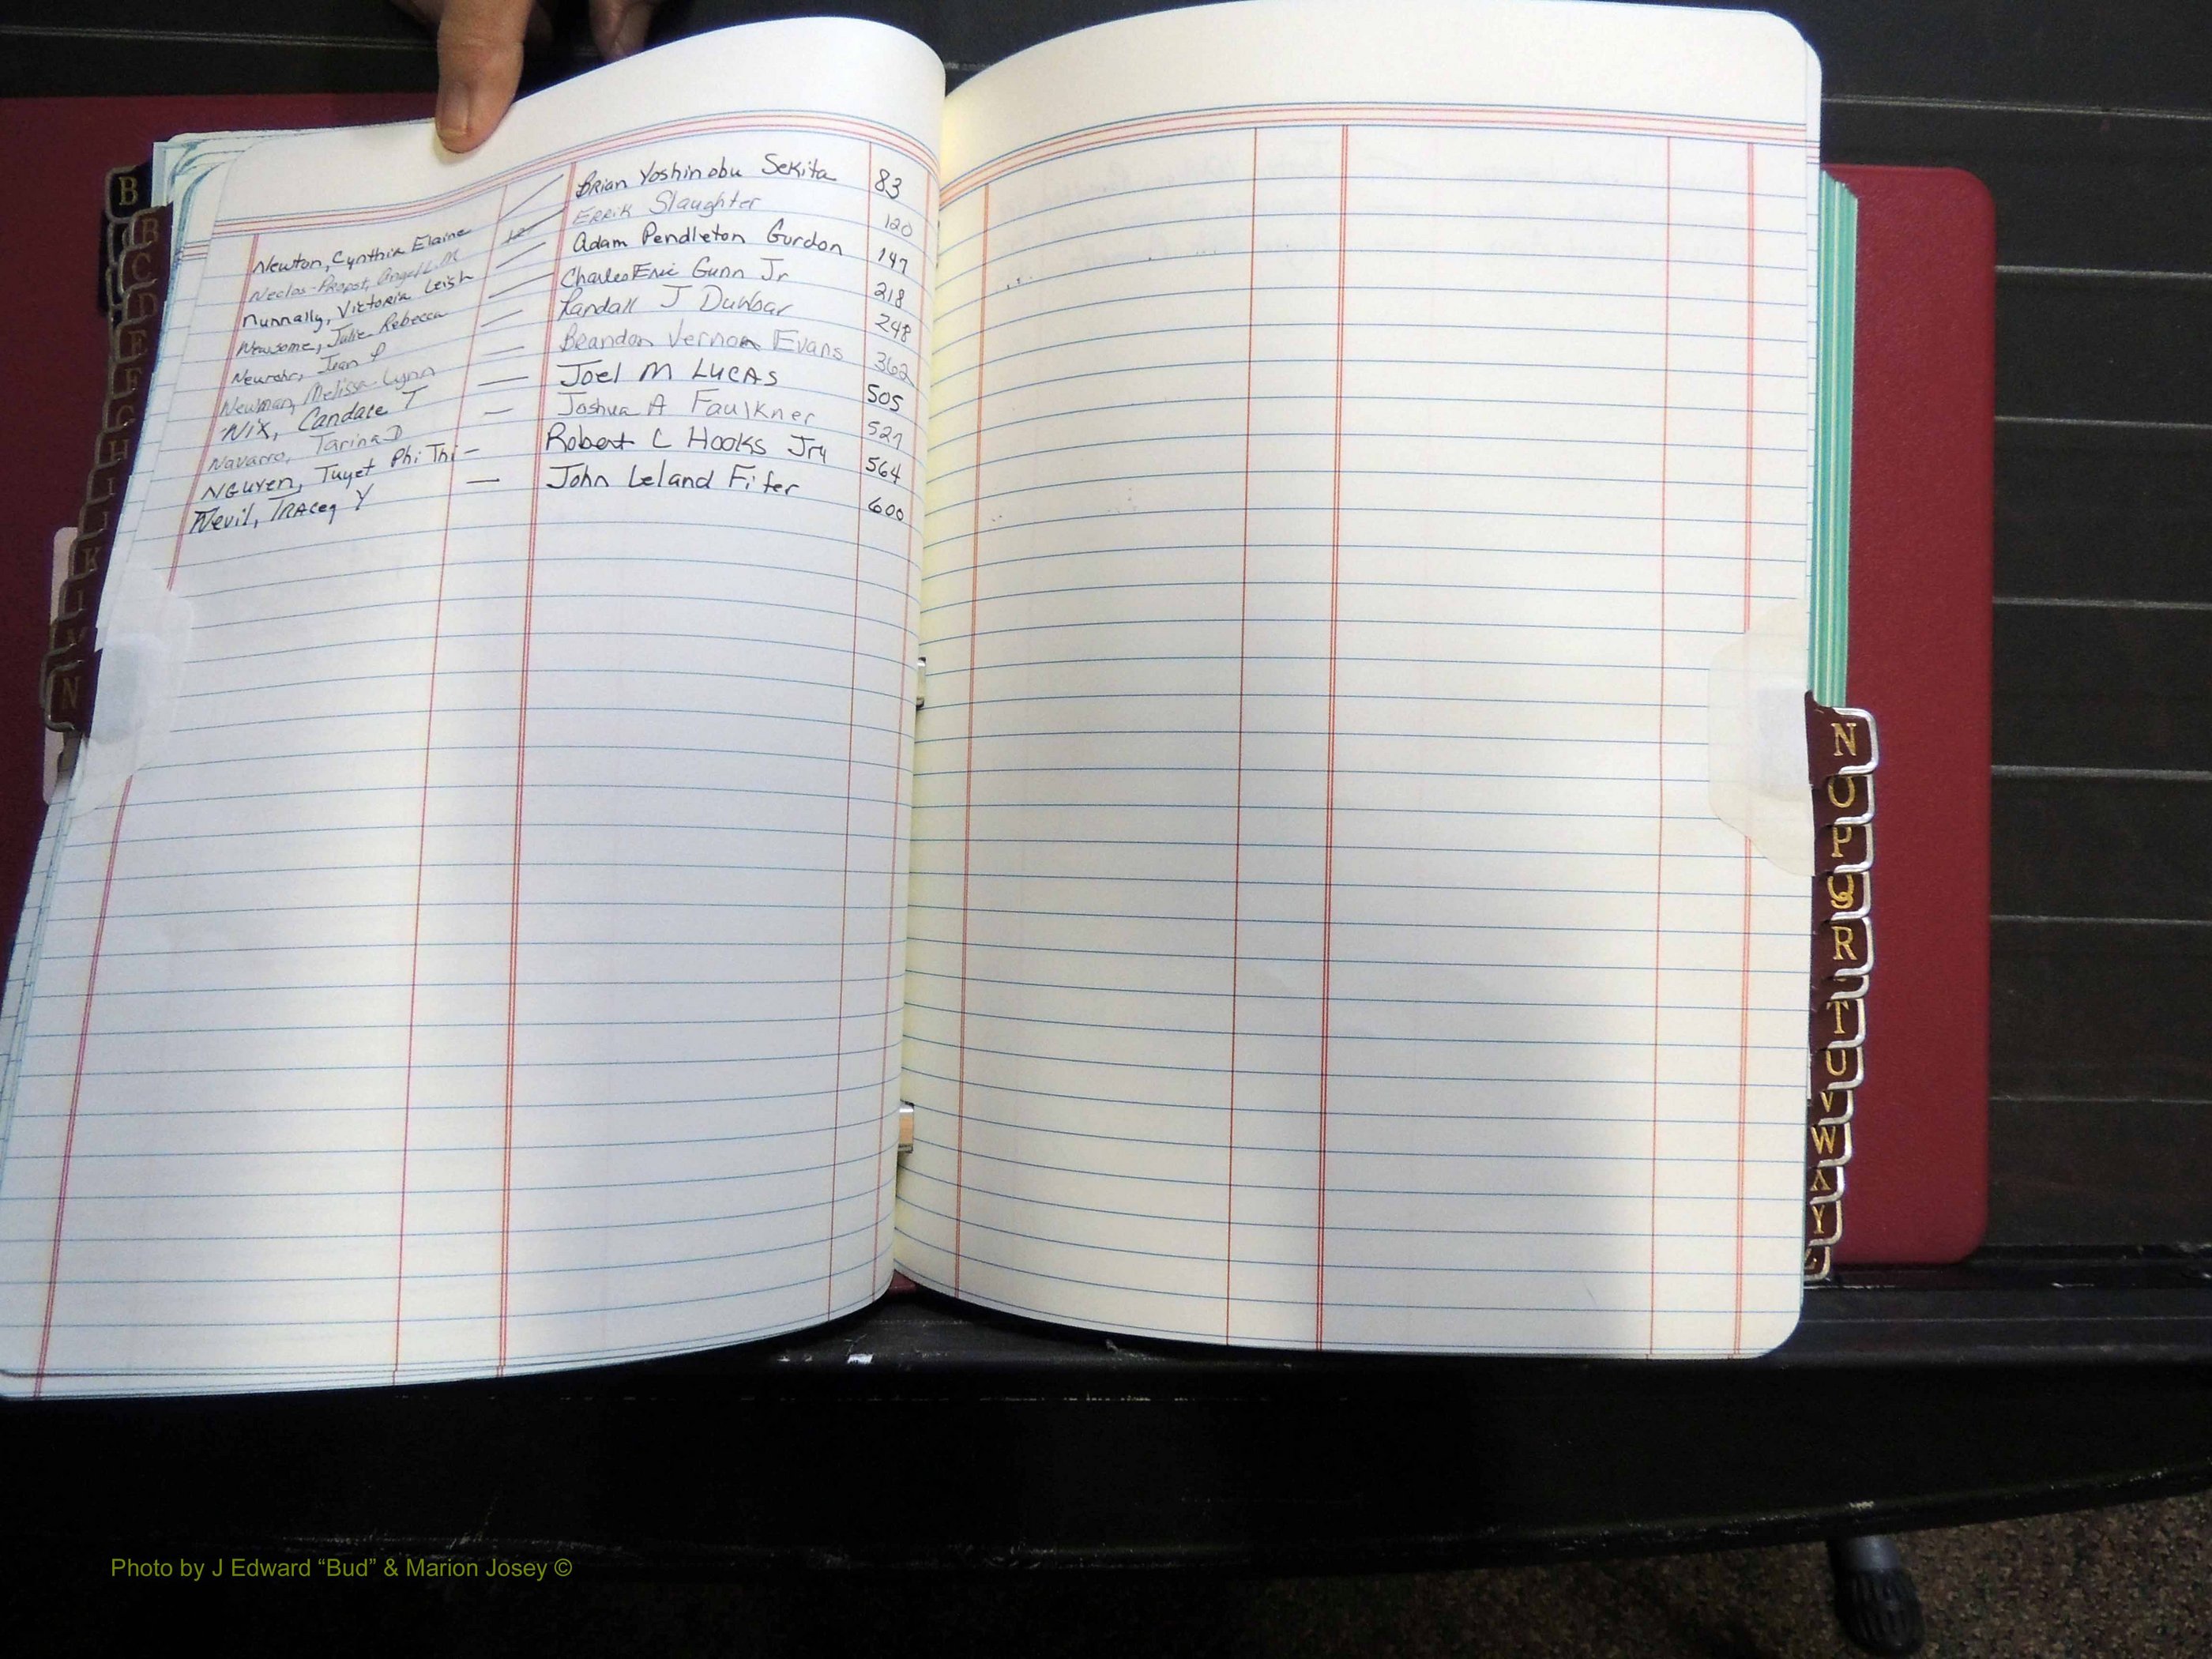 Newton, Cynthia Elaine — Brian Yoshinobu Sekita 83
Angel L.M — Errik Slaughter 120
Nunnally, Victoria Leigh — Adam Pendleton Gordon 147
Newsome, Julie Rebecca — Charles Eric Gunn Jr 218
Jean P — Randall J Dunbar 248
Newman, Melissa Lynn — Brandon Vernon Evans 362
Nix, Candace T — Joel M Lucas 505
Navarro, Tarina D — Joshua A Faulkner 527
Nguyen, Tuyet Phi Thi — Robert C Hooks Jr 564
Nevil, Tracey Y — John Leland Fifer 600
B
B
C
D
E
F
G
H
I
J
K
L
N
N
O
P
Q
R
T
U
V
W
X
Y
Z
Photo by J Edward “Bud” & Marion Josey ©